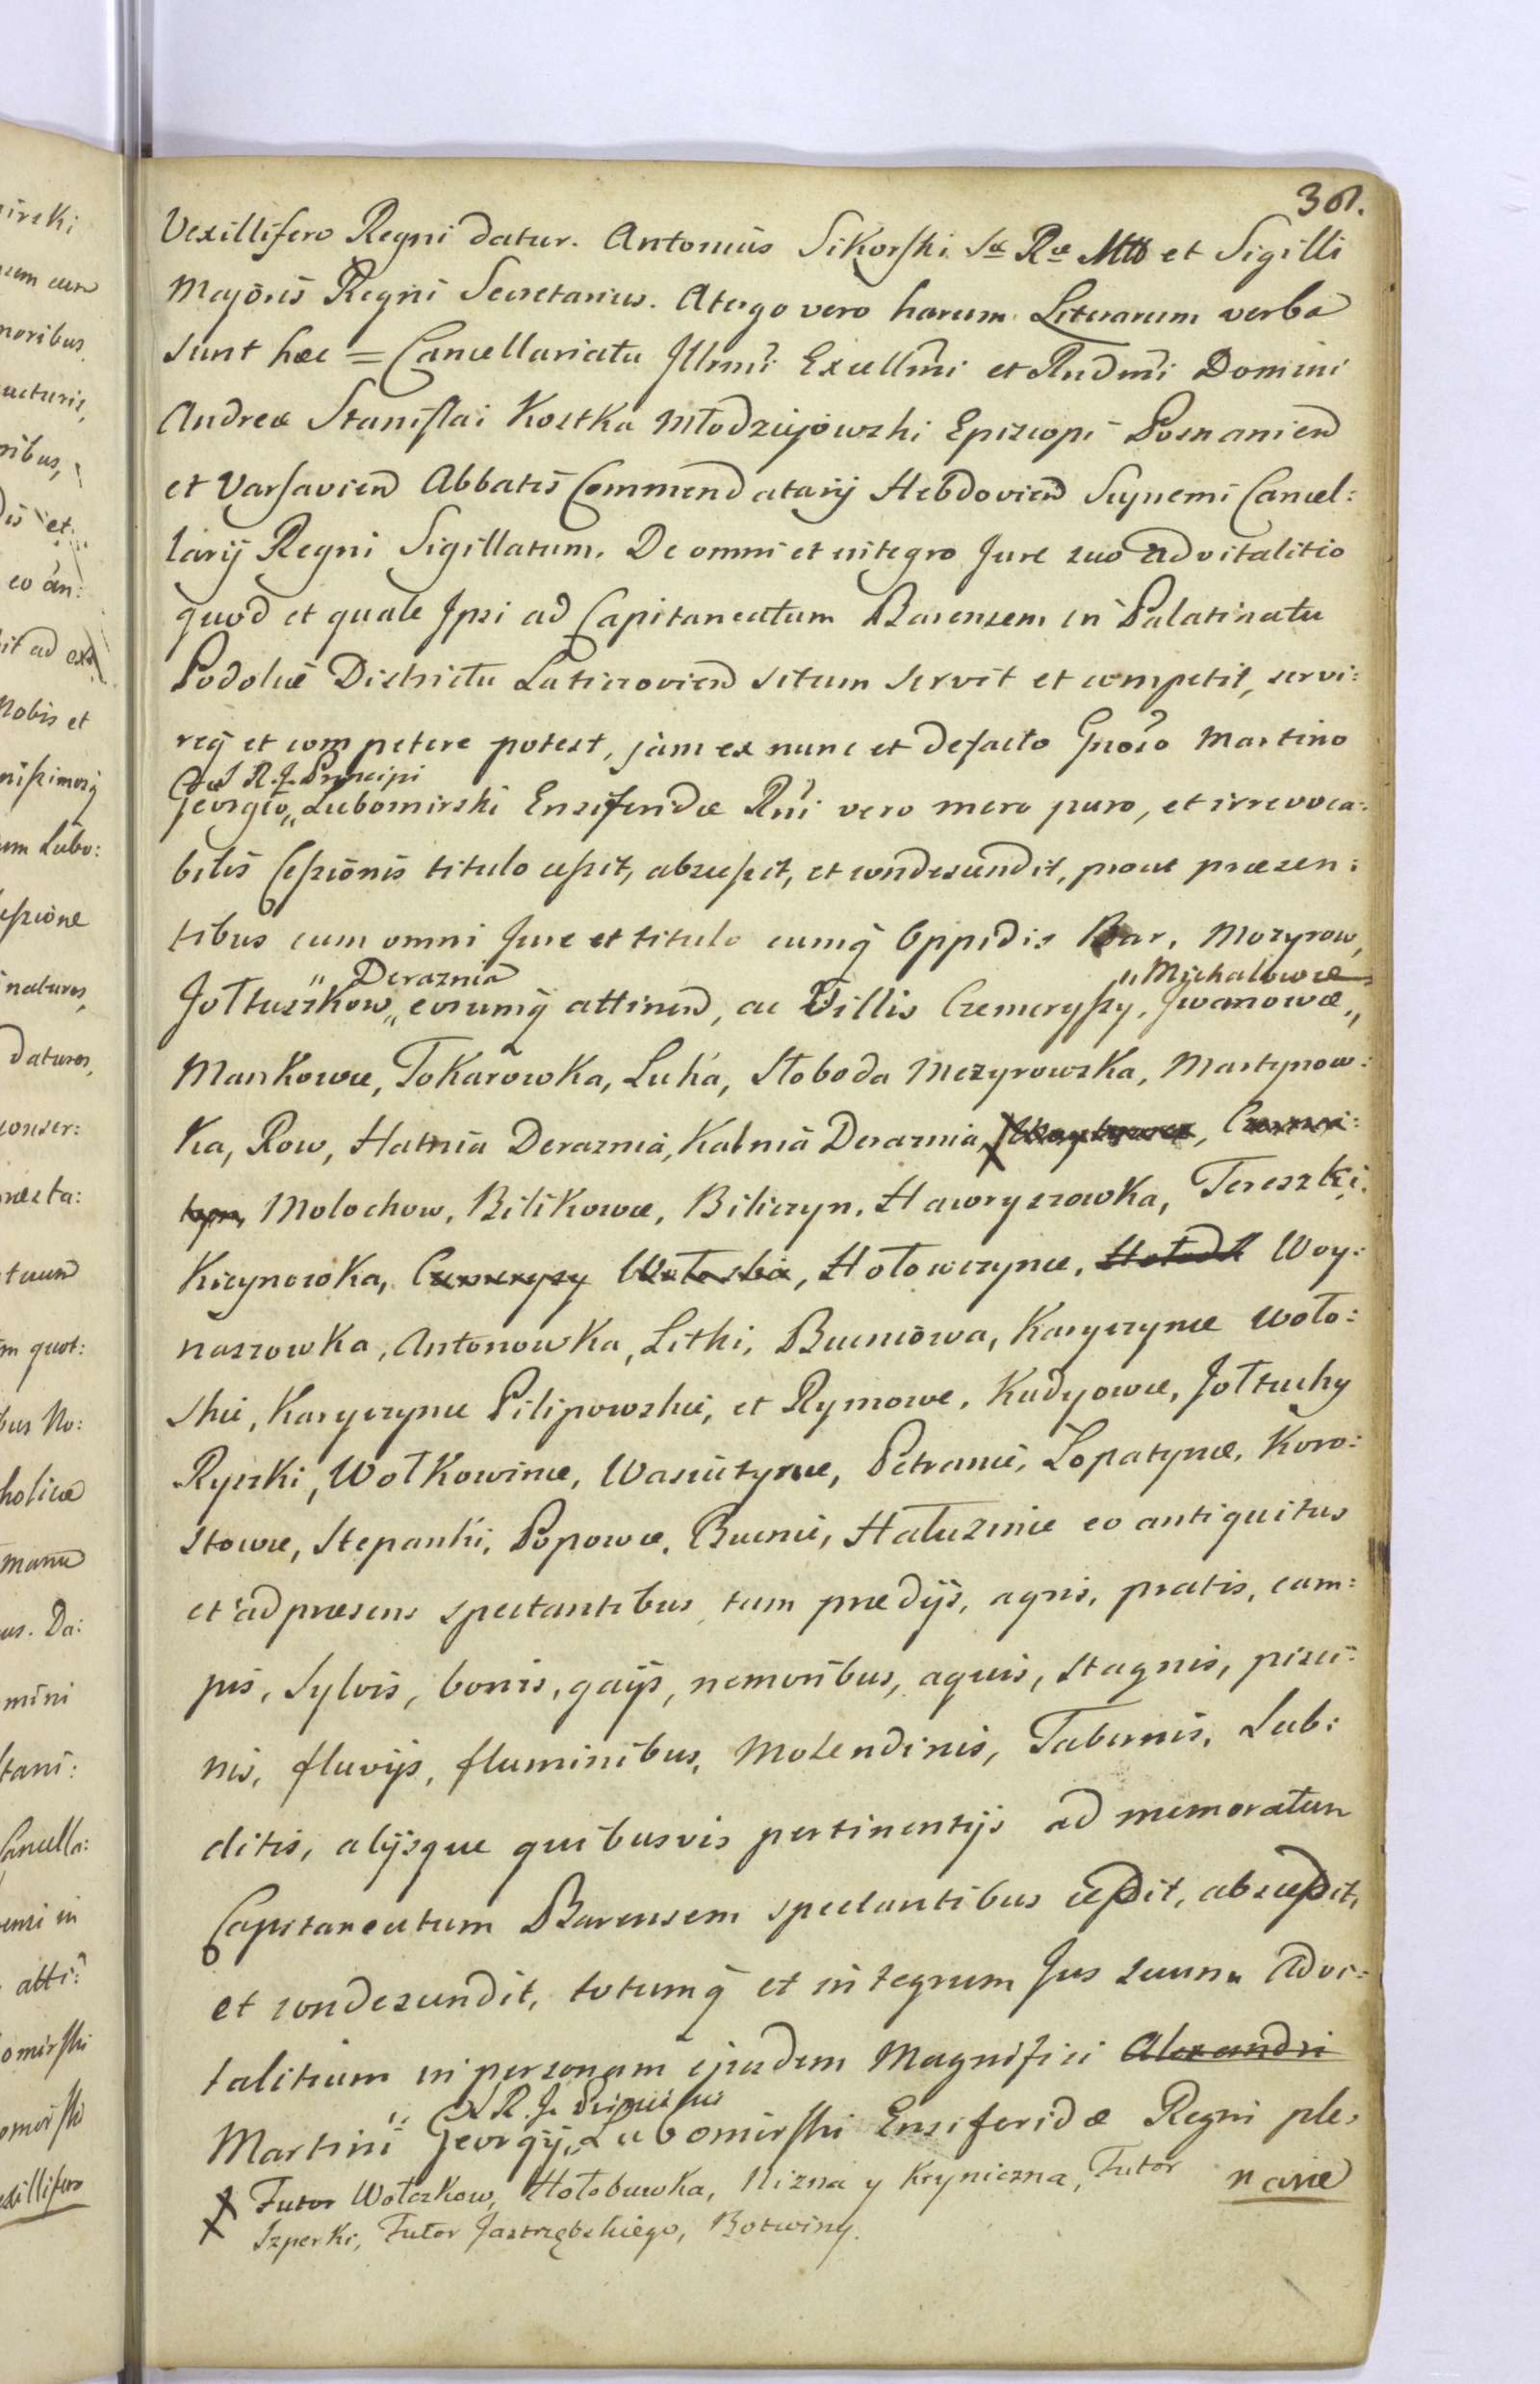 301.
Vexillifero Regni datur. Antonius Sikorski Sæ Ræ Mttis et Sigilli
Majoris Regni Secretarius. Atergo vero harum Literarum verba
sunt hæc = Cancellariatu Jllrmi Excellmi et Rndmi Domini
Andreæ Stanislai Kostka Młodziejowski Episcopi Posnanien
et Varsavien Abbatis Commendatarij Hebdovien Supremi Cancel:
larij Regni Sigillatum. De omni et integro Jure suo advitalitio
quod et quale Jpsi ad Capitaneatum Barensem in Palatinatu
Podoliæ Districtu Laticzovien situm servit et competit, servi:
req et competere potest, jam ex nunc et defacto Gnoso Martino
S R. J. Principi
Georgio,, Lubomirski Ensiferidæ Rni vero mero puro, et irrevoca:
bilis Cessionis titulo cessit, abscessit, et condescendit, prout præsen:
tibus cum omni Jure et titulo cumq Oppidis Bar, Mozyrow,
,, Deraznia ,, Michalowce
Jołtuszkow,, eorumq attinen, ac Villis Czemeryssy, Jwanowce,,
Mankowce, Tokarowka, Luka, Słoboda Mezyrowska, Martynow:
ka, Row, Hatnia Deraznia, Kalnia Deraznia,
Molochow, Bilikowce, Biliczyn, Hawryszowka, Tereszki,
Kicynowka, Czemerysy Wołoskie, Hołowczynce, Woy:
naszowka, Antonowka, Litki, Bucniowa, Karyczynce Woło:
skie, Karyczynce Pilipowskie, et Rymowe, Kudyowce, Jołtuchy
Ryszki, Wołkowince, Wasiutynce, Petranie, Łopatynce, Koro:
stowce, Stepanki, Popowce, Bucnie, Hałuzince eo antiquitus
et ad præsens spectantibus, tum prædijs, agris, pratis, cam:
pis, sylvis, borris, gaijs, nemoribus, aquis, stagnis, pisci:
nis, fluvijs, fluminibus, Molendinis, Tabernis, Sub:
ditis, alijsque quibusvis pertinentijs ad memoratum
Capitaneatum Barensem spectantibus cessit, abscessit,
et condescendit, totumq et integrum Jus suum advi:
talitium in personam ejusdem Magnifici Alexandri
S R. J. Principis
Martini Georgij,, Lubomirski Ensiferidæ Regni ple:
nariæ
Futor Wołczkow, Hołobuwka, Nizna y Kryniczna, Futor
Szperki, Futor Jastrzębskiego, Botwiny.